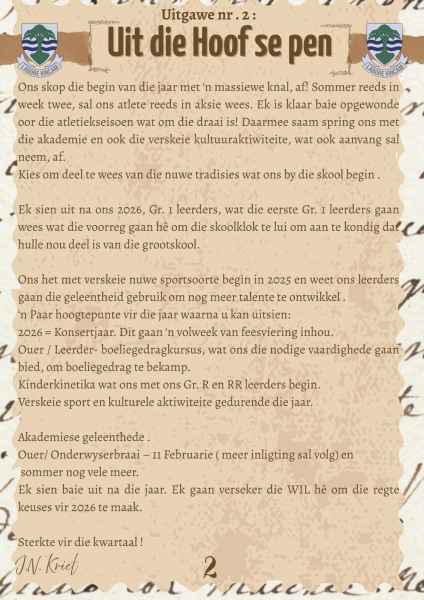 Uitgawe nr . 2 :
Uit die Hoof se pen
Ons skop die begin van die jaar met 'n massiewe knal, af! Sommer reeds in
week twee, sal ons atlete reeds in aksie wees. Ek is klaar baie opgewonde
oor die atletiekseisoen wat om die draai is! Daarmee saam spring ons met
die akademie en ook die verskeie kultuuraktiwiteite, wat ook aanvang sal
neem, af.
Kies om deel te wees van die nuwe tradisies wat ons by die skool begin .
Ek sien uit na ons 2026, Gr. 1 leerders, wat die eerste Gr. 1 leerders gaan
wees wat die voorreg gaan hê om die skoolklok te lui om aan te kondig dat
hulle nou deel is van die grootskool.
Ons het met verskeie nuwe sportsoorte begin in 2025 en weet ons leerders
gaan die geleentheid gebruik om nog meer talente te ontwikkel .
'n Paar hoogtepunte vir die jaar waarna u kan uitsien:
2026 = Konsertjaar. Dit gaan 'n volweek van feesviering inhou.
Ouer / Leerder- boeliegedragkursus, wat ons die nodige vaardighede gaan
bied, om boeliegedrag te bekamp.
Kinderkinetika wat ons met ons Gr. R en RR leerders begin.
Verskeie sport en kulturele aktiwiteite gedurende die jaar.
Akademiese geleenthede .
Ouer/ Onderwyserbraai – 11 Februarie ( meer inligting sal volg) en
sommer nog vele meer.
Ek sien baie uit na die jaar. Ek gaan verseker die WIL hê om die regte
keuses vir 2026 te maak.
Sterkte vir die kwartaal !
J.N. Kriel
2